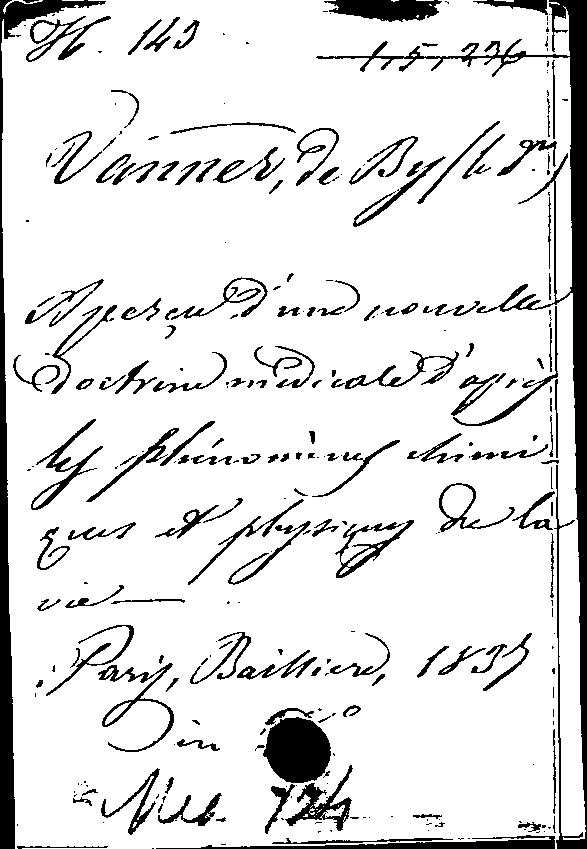 H. 143
1,5,236
Vanner, de By (le Dr)
Aperçu d'une nouvelle
doctrine médicale d'après
les phénomènes chimi-
ques et physiques de la
vie
Paris, Baillière, 1837
in
Med. 724